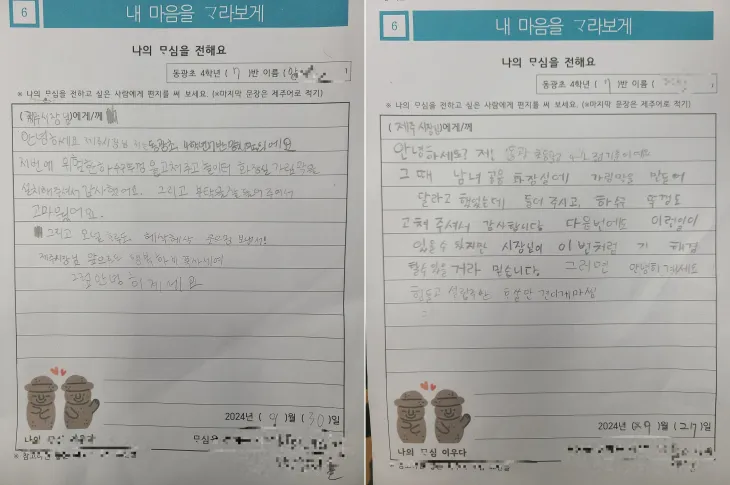 6
내 마음을 ᄀᆞ라보게
나의 ᄆᆞ심을 전해요
동광초 4학년 ( 7 )반 이름 (
※ 나의 ᄆᆞ심을 전하고 싶은 사람에게 편지를 써 보세요. (※마지막 문장은 제주어로 적기)
(제주시장님)에게/께
안녕하세요 제주시장님 저는 동광초
저번에 위험한 하수구뚜껑을 고쳐주고 놀이터 화장실 가림막을
설치해주셔서 감사했어요. 그리고 부탁을 들어주셔서
고마워어요.
그리고 오늘 하루도
제주시장님 앞으로는 행복하게
그럼 안녕히계세요
2024년 ( 9 )월 ( 30 )일
나의 ᄆᆞ심 이우다
6
내 마음을 ᄀᆞ라보게
나의 ᄆᆞ심을 전해요
동광초 4학년 ( 7 )반 이름 (
※ 나의 ᄆᆞ심을 전하고 싶은 사람에게 편지를 써 보세요. (※마지막 문장은 제주어로 적기)
(제주시장님)에게/께
안녕하세요? 저는 동광
그 때 남녀 공용 화장실에 가림막을 만들어
달라고 했었는데 들어 주시고, 하수 뚜껑도
고쳐 주셔서 감사합니다 다음번에도 이런일이
있을수 있지만 시장님이 이번처럼 기 해결
될수있을 거라 믿습니다. 그러면 안녕히계세요
2024년 ( 9 )월 ( 27 )일
나의 ᄆᆞ심 이우다